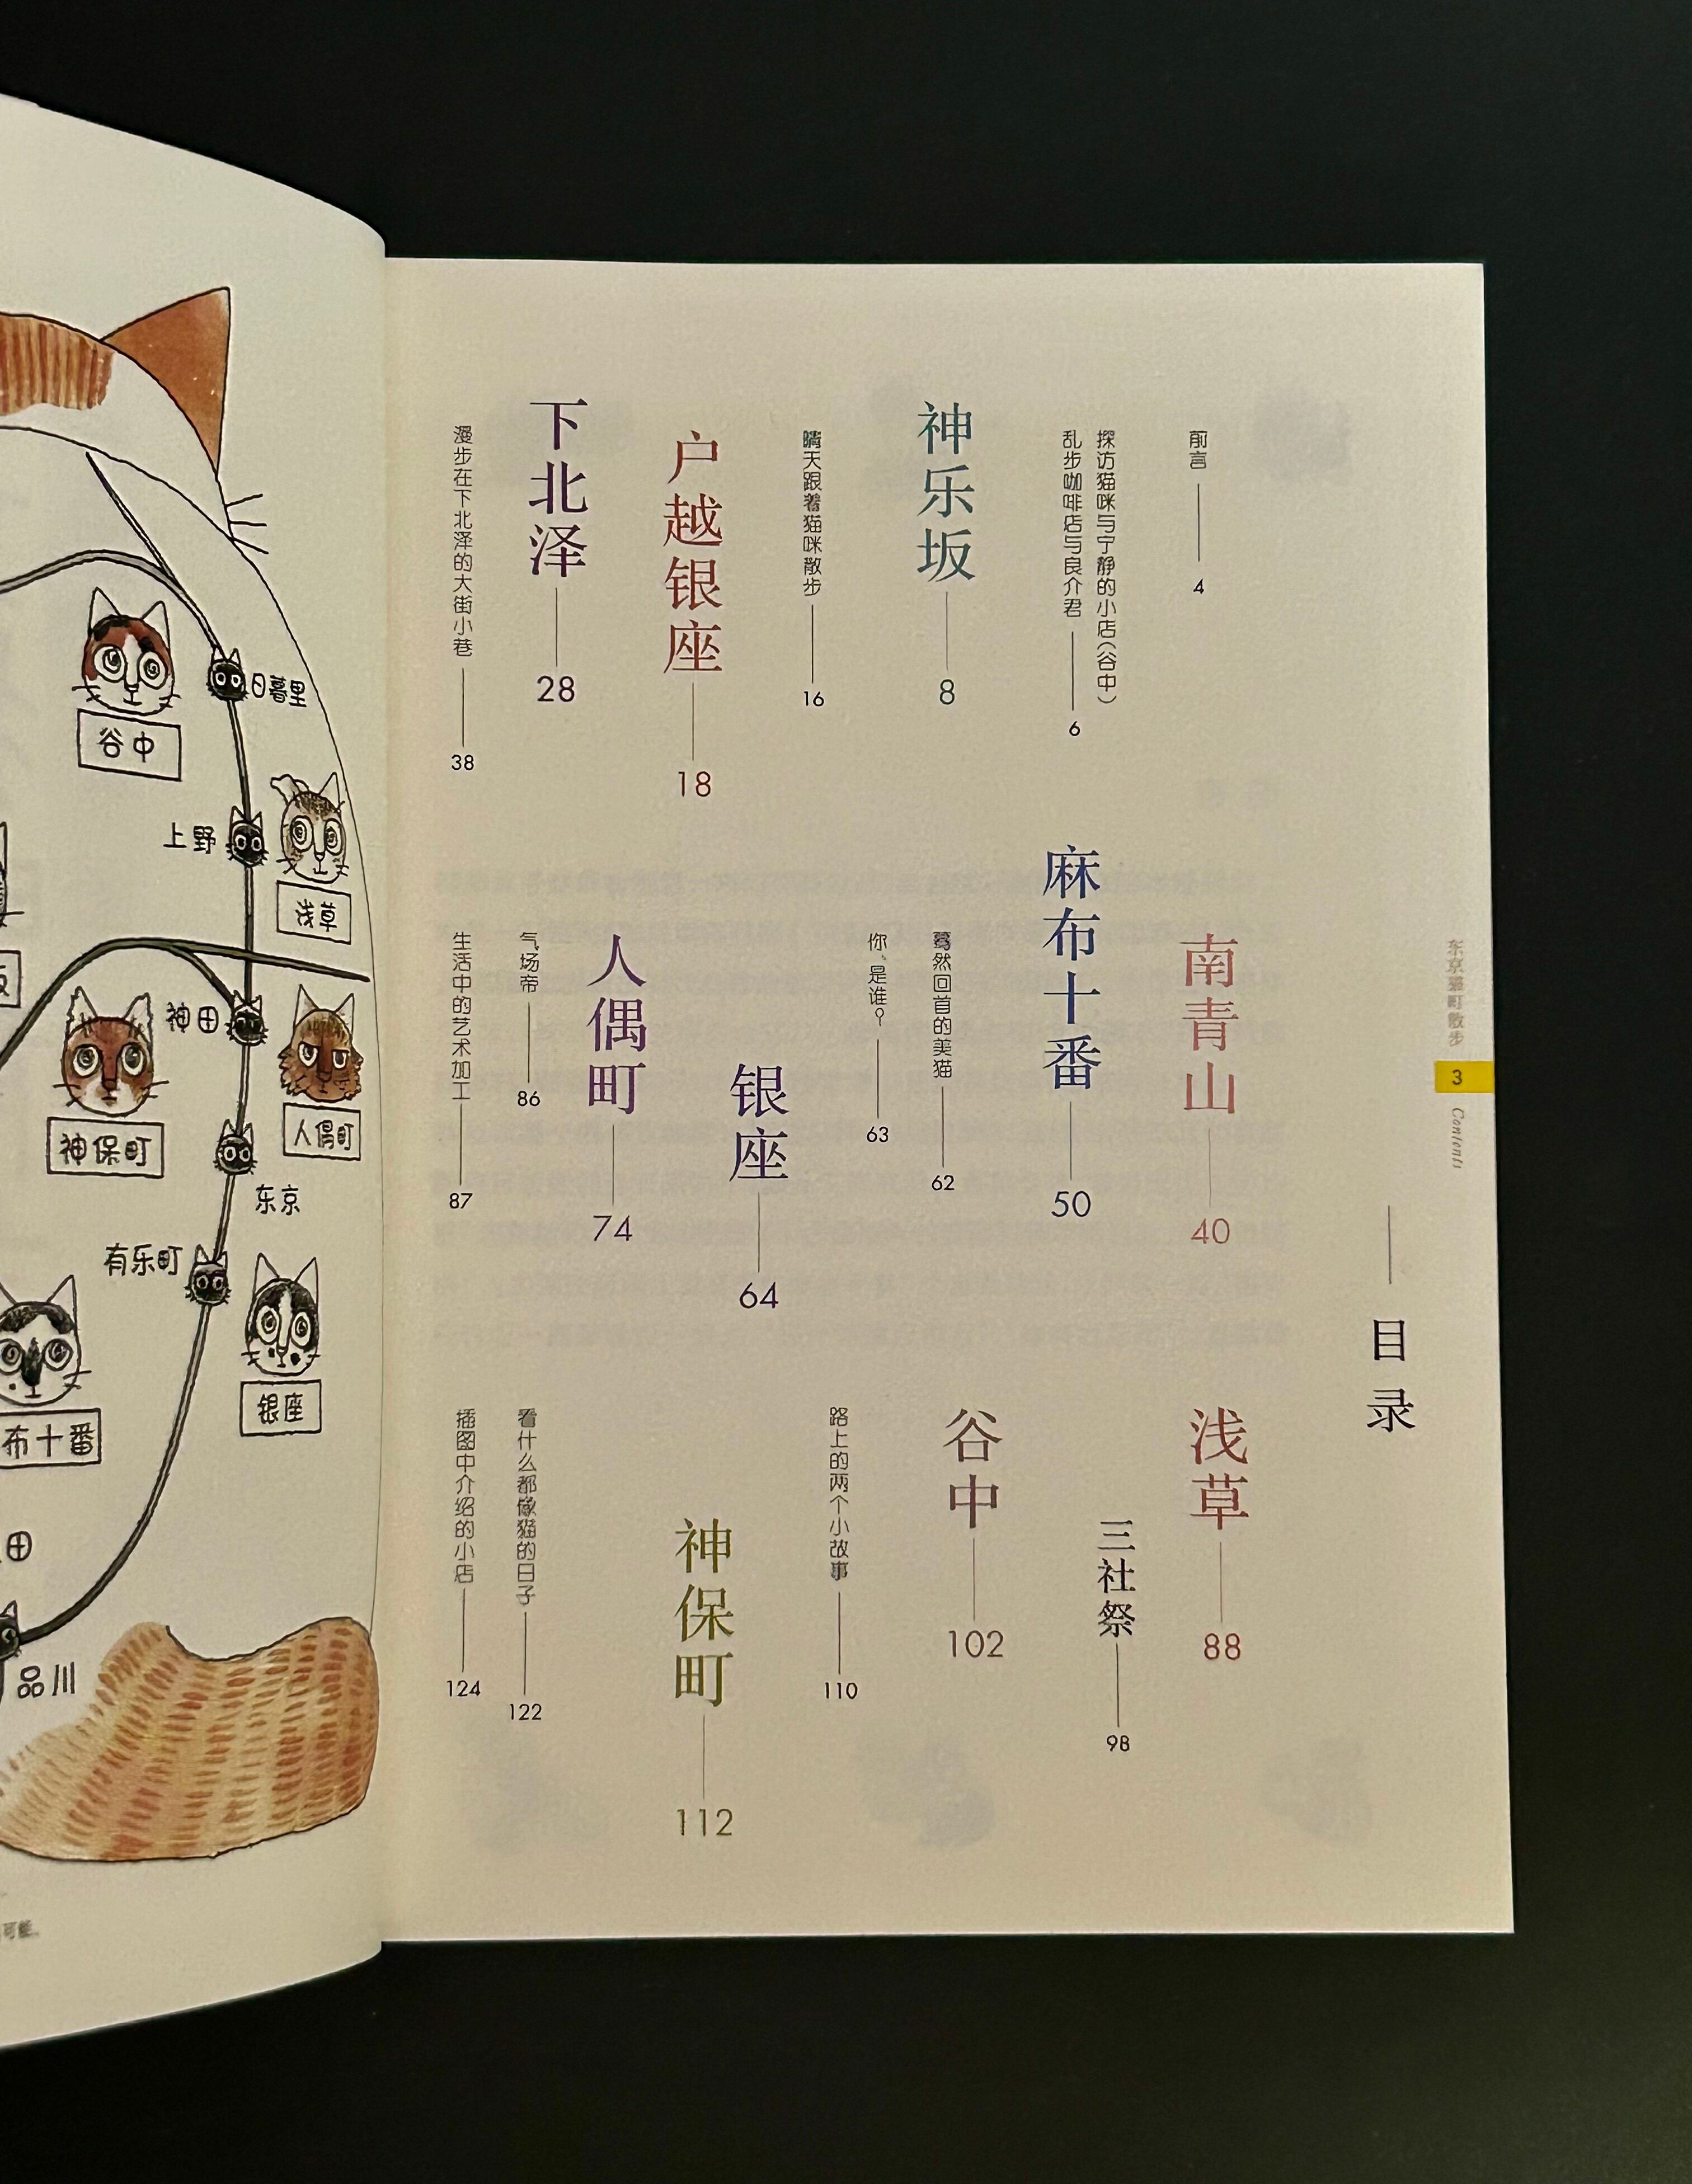 日暮里
谷中
上野
浅草
神田
神保町
人偶町
东京
有乐町
银座
布十番
田
品川
可能。
东京猫町散步
3
Contents
目录
前言
4
探访猫咪与宁静的小店(谷中)
乱步咖啡店与良介君
6
神乐坂
8
晴天跟着猫咪散步
16
户越银座
18
下北泽
28
漫步在下北泽的大街小巷
38
南青山
40
麻布十番
50
蓦然回首的美猫
62
你,是谁?
63
银座
64
人偶町
74
气场帝
86
生活中的艺术加工
87
浅草
88
三社祭
98
谷中
102
路上的两个小故事
110
神保町
112
看什么都像猫的日子
122
插图中介绍的小店
124